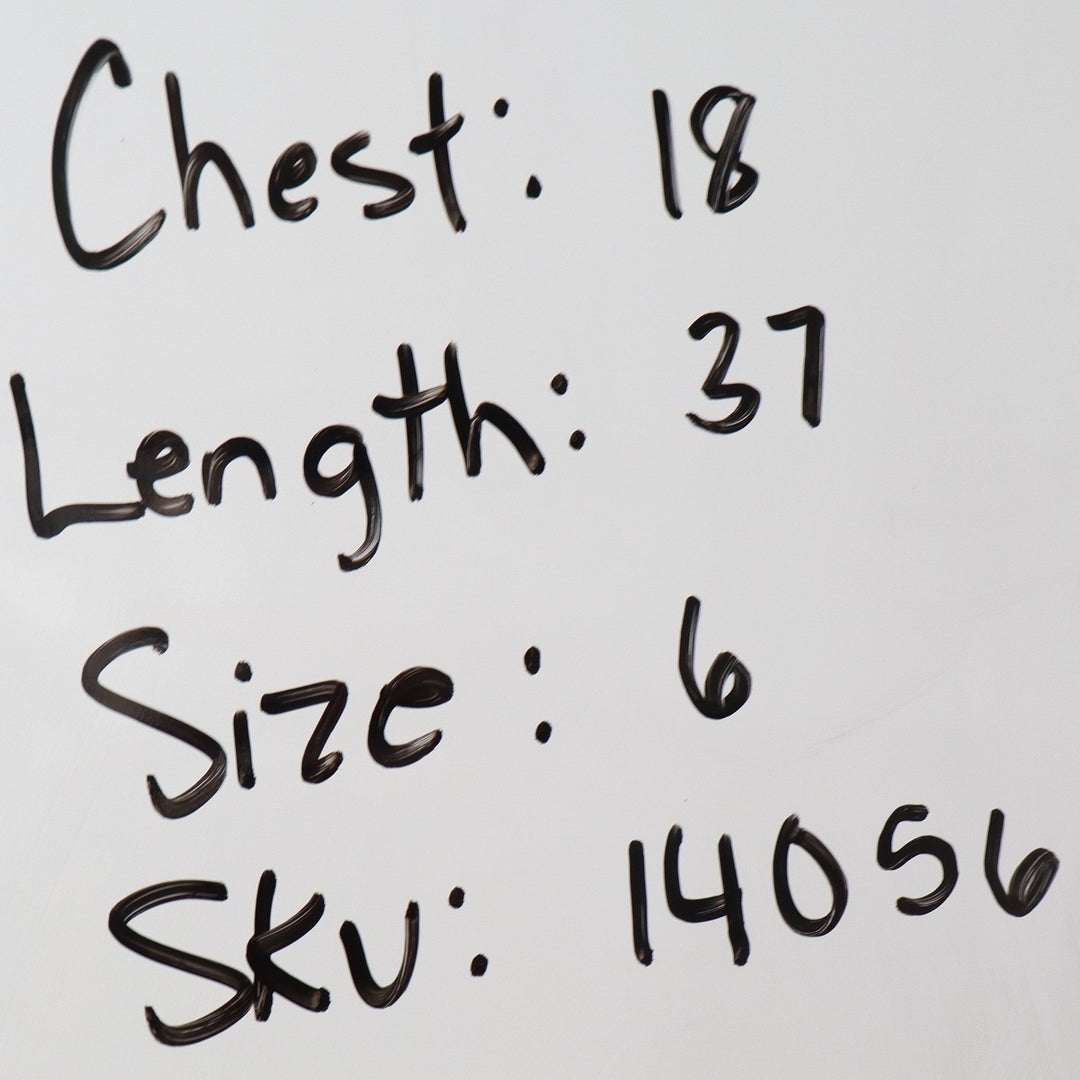 Chest: 18
Length: 37
Size: 6
Sku: 14056